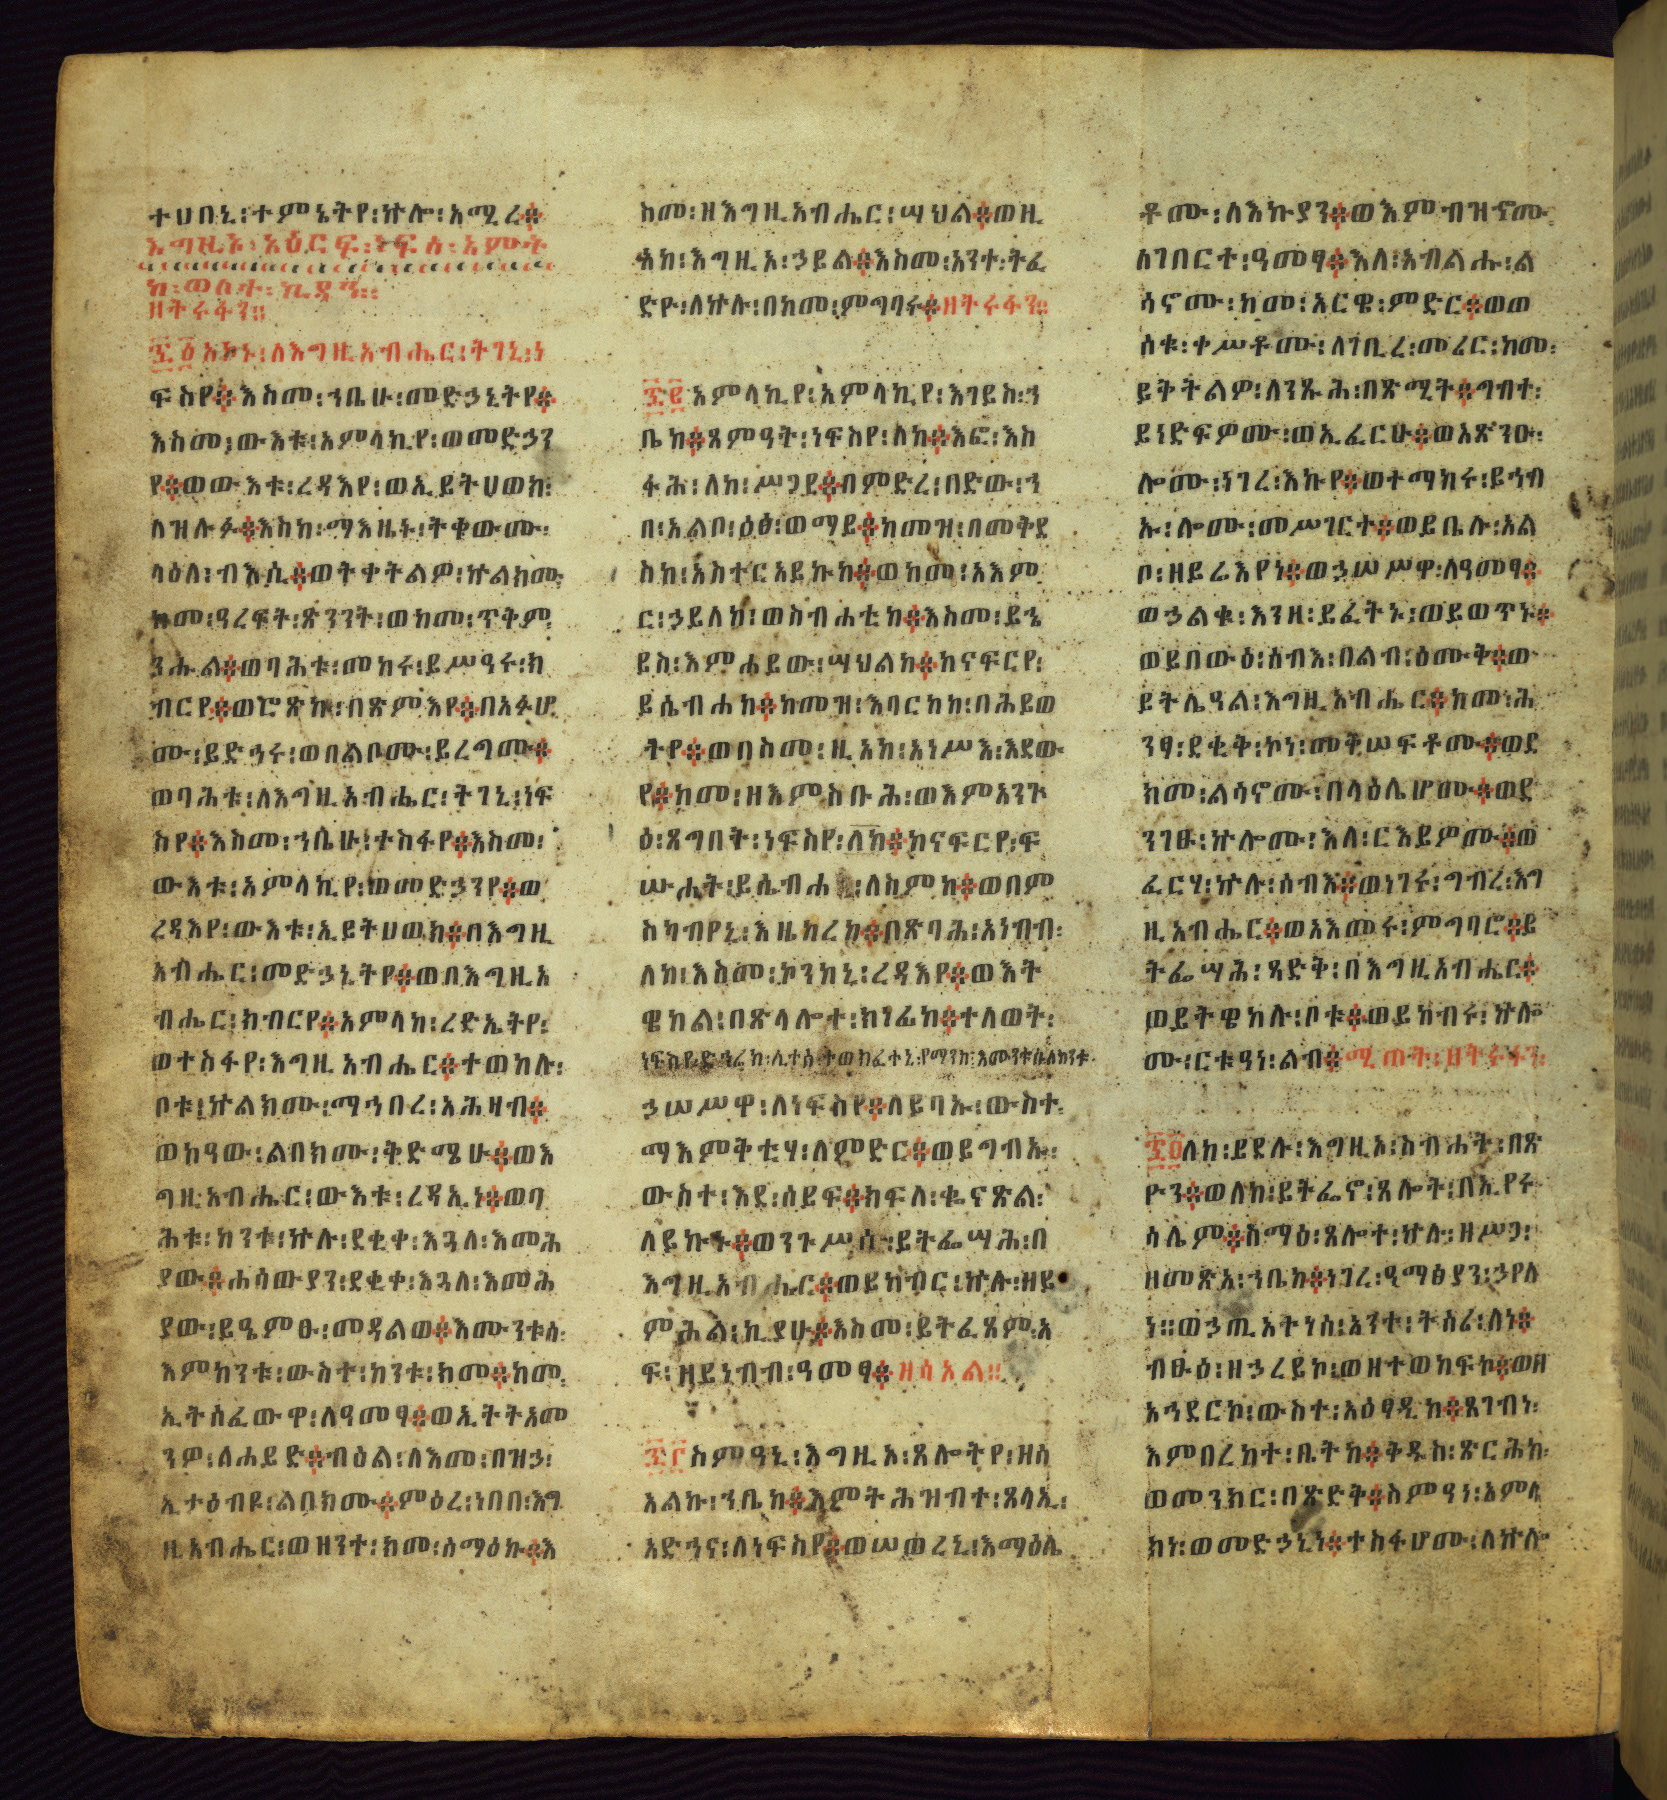 ተሀበኒ፡ተምኔትየ፡ኵሎ፡አሚረ።
እግዚእ፡አዕርፍ፡ነፍሰ፡አሙት
ከ፡ወስተ፡ኪዳን።
ዘትሩፋን።
፷፩አኮኑ፡ለእግዚአብሔር፡ትገኒ፡ነ
ፍስየ።እስመ፡ኀቤሁ፡መድኃኒትየ።
እስመ፡ውእቱ፡አምላኪየ፡ወመድኃን
የ።ወውእቱ፡ረዳእየ፡ወኢይትሀወክ፡
ለዝሉፉ።እስከ፡ማእዜኑ፡ትቀውሙ፡
ላዕለ፡ብእሲ።ወትቀትልዎ፡ኵልክሙ፡
ከመ፡ዓረፍት፡ጽንንት፡ወከመ፡ጥቅም
ንሑል።ወባሕቱ፡መከሩ፡ይሥዓሩ፡ክ
ብርየ።ወሮጽኩ፡በጽምእየ።በአፉሆ
ሙ፡ይድኅሩ፡ወበልቦሙ፡ይረግሙ።
ወባሕቱ፡ለእግዚአብሔር፡ትገኒ፡ነፍ
ስየ።እስመ፡ኀቤሁ፡ተስፋየ።እስመ፡
ውእቱ፡አምላኪየ፡ወመድኃንየ።ወ
ረዳእየ፡ውእቱ፡ኢይትሀወክ።በእግዚ
አብሔር፡መድኃኒትየ።ወበእግዚአ
ብሔር፡ክብርየ።አምላክ፡ረድኤትየ፡
ወተስፋየ፡እግዚአብሔር።ተወከሉ፡
ቦቱ፡ኵልክሙ፡ማኅበረ፡አሕዛብ።
ወከዓው፡ልበክሙ፡ቅድሜሁ።ወእ
ግዚአብሔር፡ውእቱ፡ረዳኢነ።ወባ
ሕቱ፡ከንቱ፡ኵሉ፡ደቂቀ፡እጓለ፡እመሕ
ያው።ሐሳውያን፡ደቂቀ፡እጓለ፡እመሕ
ያው፡ይዔምፁ፡መዳልወ።እሙንቱሰ፡
እምከንቱ፡ውስተ፡ከንቱ፡ከመ።ከመ፡
ኢትሰፈውዋ፡ለዓመፃ።ወኢትትአመ
ንዎ፡ለሐይድ።ብዕል፡ለእመ፡በዝኃ፡
ኢታዕብዩ፡ልበክሙ።ምዕረ፡ነበበ፡እግ
ዚአብሔር፡ወዘንተ፡ከመ፡ሰማዕኩ።እ
ስመ፡ዘእግዚአብሔር፡ሣህል።ወዚ
አከ፡እግዚአ፡ኃይል።እስመ፡አንተ፡ትፈ
ድዮ፡ለኵሉ፡በከመ፡ምግባሩ።ዘትሩፋን።
፷፪አምላኪየ፡አምላኪየ፡እገይስ፡ኀ
ቤከ።ጸምዓት፡ነፍስየ፡ለከ።እፎ፡እስ
ፋሕ፡ለከ፡ሥጋየ።በምድረ፡በድው፡ኀ
በ፡አልቦ፡ዕፅ፡ወማይ።ከመዝ፡በመቅደ
ስከ፡አስተርአይኩከ።ወከመ፡አእም
ር፡ኃይለከ፡ወስብሐቲከ።እስመ፡ይኄ
ይስ፡እምሐይው፡ሣህልከ።ከናፍርየ፡
ይሴብሐከ።ከመዝ፡እባርከከ፡በሕይወ
ትየ።ወበስመ፡ዚአከ፡አነሥእ፡እደው
የ።ከመ፡ዘእምስቡሕ፡ወእምአንጉ
ዕ፡ጸግበት፡ነፍስየ፡ለከ።ከናፍርየ፡ፍ
ሡሐት፡ይሴብሐ፡ለስምከ።ወበም
ስካብየኒ፡እዜከረከ።በጽባሕ፡አነብብ፡
ለከ፡እስመ፡ኮንከኒ፡ረዳእየ።ወእት
ዌከል፡በጽላሎተ፡ክንፊከ።ተለወት፡
ነፍስየ፡ድኅሬከ፡ሊተሰ፡ተወክፈተኒ፡የማንከ፡እሙንቱሰ፡ለከንቱ፡
ኃሠሥዋ፡ለነፍስየ።ለይባኡ፡ውስተ፡
ማእምቅቲሃ፡ለምድር።ወይግብኡ፡
ውስተ፡እደ፡ሰይፍ።ክፍለ፡ቈናጽል፡
ለይኩኑ።ወንጉሥሰ፡ይትፌሣሕ፡በ
እግዚአብሔር።ወይከብር፡ኵሉ፡ዘይ
ምሕል፡ኪያሁ።እስመ፡ይትፈጸም፡አ
ፍ፡ዘይነብብ፡ዓመፃ።ዘሳአል።
፷፫ስምዓኒ፡እግዚአ፡ጸሎትየ፡ዘሰ
አልኩ፡ኀቤከ።እምትሕዝብተ፡ጸላኢ፡
አድኅና፡ለነፍስየ።ወሠወረኒ፡እማዕሌ
ቶሙ፡ለእኩያን።ወእምብዝኆሙ
ለገበርተ፡ዓመፃ።እለ፡አብልሑ፡ል
ሳኖሙ፡ከመ፡አርዌ፡ምድር።ወወ
ሰቁ፡ቀሥቶሙ፡ለገቢረ፡መሪር፡ከመ፡
ይቅትልዎ፡ለንጹሕ፡በጽሚት።ግብተ፡
ይነድፍዎሙ፡ወኢፈርሁ።ወአጽንዑ፡
ሎሙ፡ነገረ፡እኩየ።ወተማከሩ፡ይኅብ
ኡ፡ሎሙ፡መሥገርተ።ወይቤሉ፡አል
ቦ፡ዘይሬእየነ።ወኃሠሥዋ፡ለዓመፃ።
ወኃልቁ፡እንዘ፡ይፈትኑ፡ወይወጥኑ።
ወይበውዕ፡ሰብእ፡በልብ፡ዕሙቅ።ወ
ይትሌዓል፡እግዚአብሔር።ከመ፡ሕ
ንፃ፡ደቂቅ፡ኮነ፡መቅሠፍቶሙ።ወደ
ክመ፡ልሳኖሙ፡በላዕሌሆሙ።ወደ
ንገፁ፡ኵሎሙ፡እለ፡ርእይዎሙ።ወ
ፈርሃ፡ኵሉ፡ሰብእ።ወነገሩ፡ግብረ፡እግ
ዚአብሔር።ወአእመሩ፡ምግባሮ።ይ
ትፌሣሕ፡ጻድቅ፡በእግዚአብሔር።
ወይትዌከሉ፡ቦቱ።ወይከብሩ፡ኵሎ
ሙ፡ርቱዓነ፡ልብ።ሚጠት፡ዘትሩፋን፡
፷፬ለከ፡ይደሉ፡እግዚአ፡ስብሐት፡በጽ
ዮን።ወለከ፡ይትፌኖ፡ጸሎት፡በኢየሩ
ሳሌም።ስማዕ፡ጸሎተ፡ኵሉ፡ዘሥጋ፡
ዘመጽአ፡ኀቤከ።ነገረ፡ዓማፅያን፡ኃየለ
ነ።ወኃጢአትነሰ፡አንተ፡ትሰሪ፡ለነ።
ብፁዕ፡ዘኃረይኮ፡ወዘተወከፍኮ።ወዘ
አኅደርኮ፡ውስተ፡አዕፃዲከ።ጸገብነ፡
እምበረከተ፡ቤትከ።ቅዱስ፡ጽርሕከ፡
ወመንክር፡በጽድቅ።ስምዓነ፡አምላ
ክነ፡ወመድኃኒነ።ተስፋሆሙ፡ለኵሎ